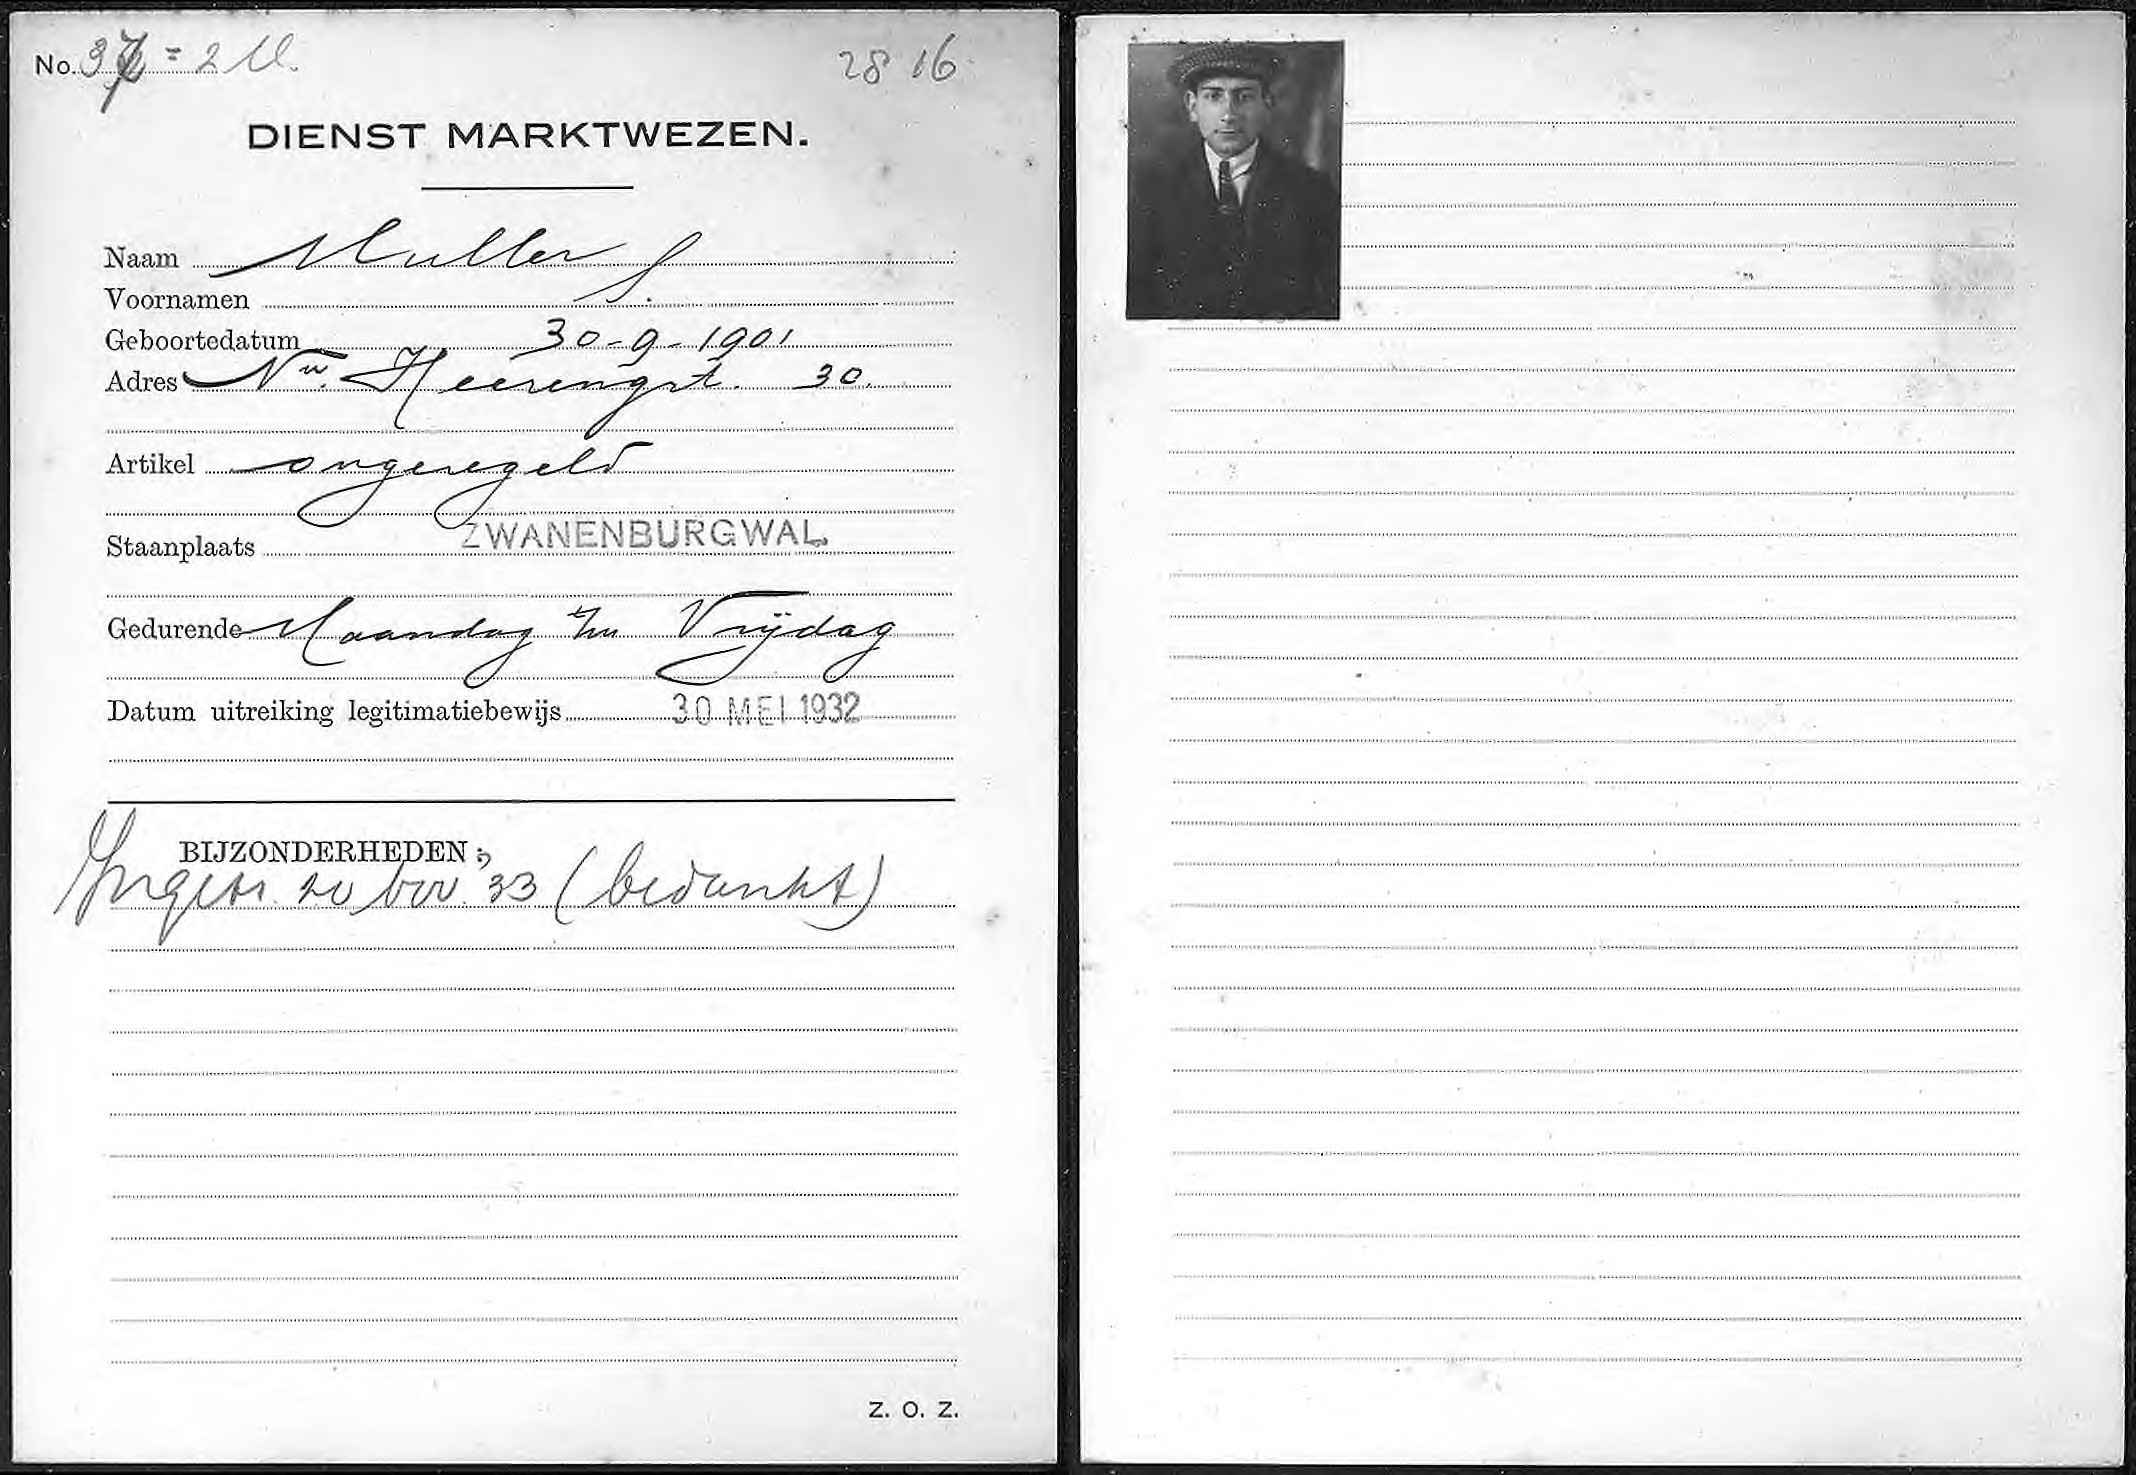 No. 37 = 2 M.
28 16
DIENST MARKTWEZEN.
Naam Muller
Voornamen S.
Geboortedatum 30-9-1901
Adres Nw. Heerengrt. 30.
Artikel ongeregeld
Staanplaats ZWANENBURGWAL.
Gedurende Maandag t/m Vrijdag
Datum uitreiking legitimatiebewijs 30 MEI 1932
BIJZONDERHEDEN:
Ingetr. 20 33 (bedankt)
Z. O. Z.